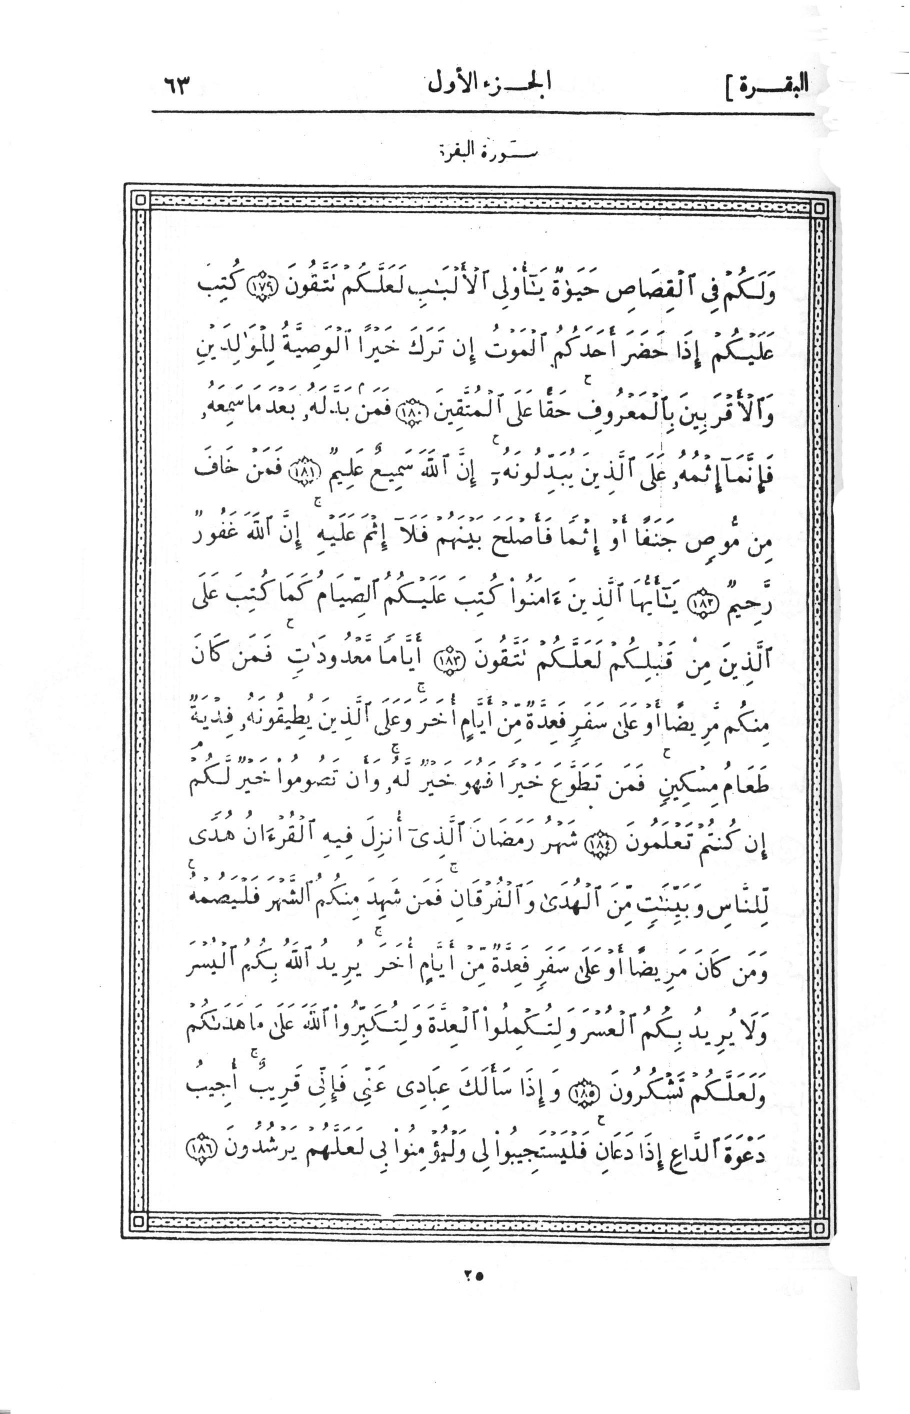 البقــرة ]
الجــزء الأول
٦٣
سورة البقرة
وَلَكُمْ فِى ٱلْقِصَاصِ حَيَوٰةٌ يَٰٓأُو۟لِى ٱلْأَلْبَٰبِ لَعَلَّكُمْ تَتَّقُونَ ١٧٩ كُتِبَ
عَلَيْكُمْ إِذَا حَضَرَ أَحَدَكُمُ ٱلْمَوْتُ إِن تَرَكَ خَيْرًا ٱلْوَصِيَّةُ لِلْوَٰلِدَيْنِ
وَٱلْأَقْرَبِينَ بِٱلْمَعْرُوفِ ۖ حَقًّا عَلَى ٱلْمُتَّقِينَ ١٨٠ فَمَنۢ بَدَّلَهُۥ بَعْدَ مَا سَمِعَهُۥ
فَإِنَّمَآ إِثْمُهُۥ عَلَى ٱلَّذِينَ يُبَدِّلُونَهُۥٓ ۚ إِنَّ ٱللَّهَ سَمِيعٌ عَلِيمٌ ١٨١ فَمَنْ خَافَ
مِن مُّوصٍ جَنَفًا أَوْ إِثْمًا فَأَصْلَحَ بَيْنَهُمْ فَلَآ إِثْمَ عَلَيْهِ ۚ إِنَّ ٱللَّهَ غَفُورٌ
رَّحِيمٌ ١٨٢ يَٰٓأَيُّهَا ٱلَّذِينَ ءَامَنُوا۟ كُتِبَ عَلَيْكُمُ ٱلصِّيَامُ كَمَا كُتِبَ عَلَى
ٱلَّذِينَ مِن قَبْلِكُمْ لَعَلَّكُمْ تَتَّقُونَ ١٨٣ أَيَّامًا مَّعْدُودَٰتٍ ۚ فَمَن كَانَ
مِنكُم مَّرِيضًا أَوْ عَلَىٰ سَفَرٍ فَعِدَّةٌ مِّنْ أَيَّامٍ أُخَرَ ۚ وَعَلَى ٱلَّذِينَ يُطِيقُونَهُۥ فِدْيَةٌ
طَعَامُ مِسْكِينٍ ۖ فَمَن تَطَوَّعَ خَيْرًا فَهُوَ خَيْرٌ لَّهُۥ ۚ وَأَن تَصُومُوا۟ خَيْرٌ لَّكُمْ ۖ
إِن كُنتُمْ تَعْلَمُونَ ١٨٤ شَهْرُ رَمَضَانَ ٱلَّذِىٓ أُنزِلَ فِيهِ ٱلْقُرْءَانُ هُدًى
لِّلنَّاسِ وَبَيِّنَٰتٍ مِّنَ ٱلْهُدَىٰ وَٱلْفُرْقَانِ ۚ فَمَن شَهِدَ مِنكُمُ ٱلشَّهْرَ فَلْيَصُمْهُ ۖ
وَمَن كَانَ مَرِيضًا أَوْ عَلَىٰ سَفَرٍ فَعِدَّةٌ مِّنْ أَيَّامٍ أُخَرَ ۗ يُرِيدُ ٱللَّهُ بِكُمُ ٱلْيُسْرَ
وَلَا يُرِيدُ بِكُمُ ٱلْعُسْرَ وَلِتُكْمِلُوا۟ ٱلْعِدَّةَ وَلِتُكَبِّرُوا۟ ٱللَّهَ عَلَىٰ مَا هَدَىٰكُمْ
وَلَعَلَّكُمْ تَشْكُرُونَ ١٨٥ وَإِذَا سَأَلَكَ عِبَادِى عَنِّى فَإِنِّى قَرِيبٌ ۖ أُجِيبُ
دَعْوَةَ ٱلدَّاعِ إِذَا دَعَانِ ۖ فَلْيَسْتَجِيبُوا۟ لِى وَلْيُؤْمِنُوا۟ بِى لَعَلَّهُمْ يَرْشُدُونَ ١٨٦
٢٥